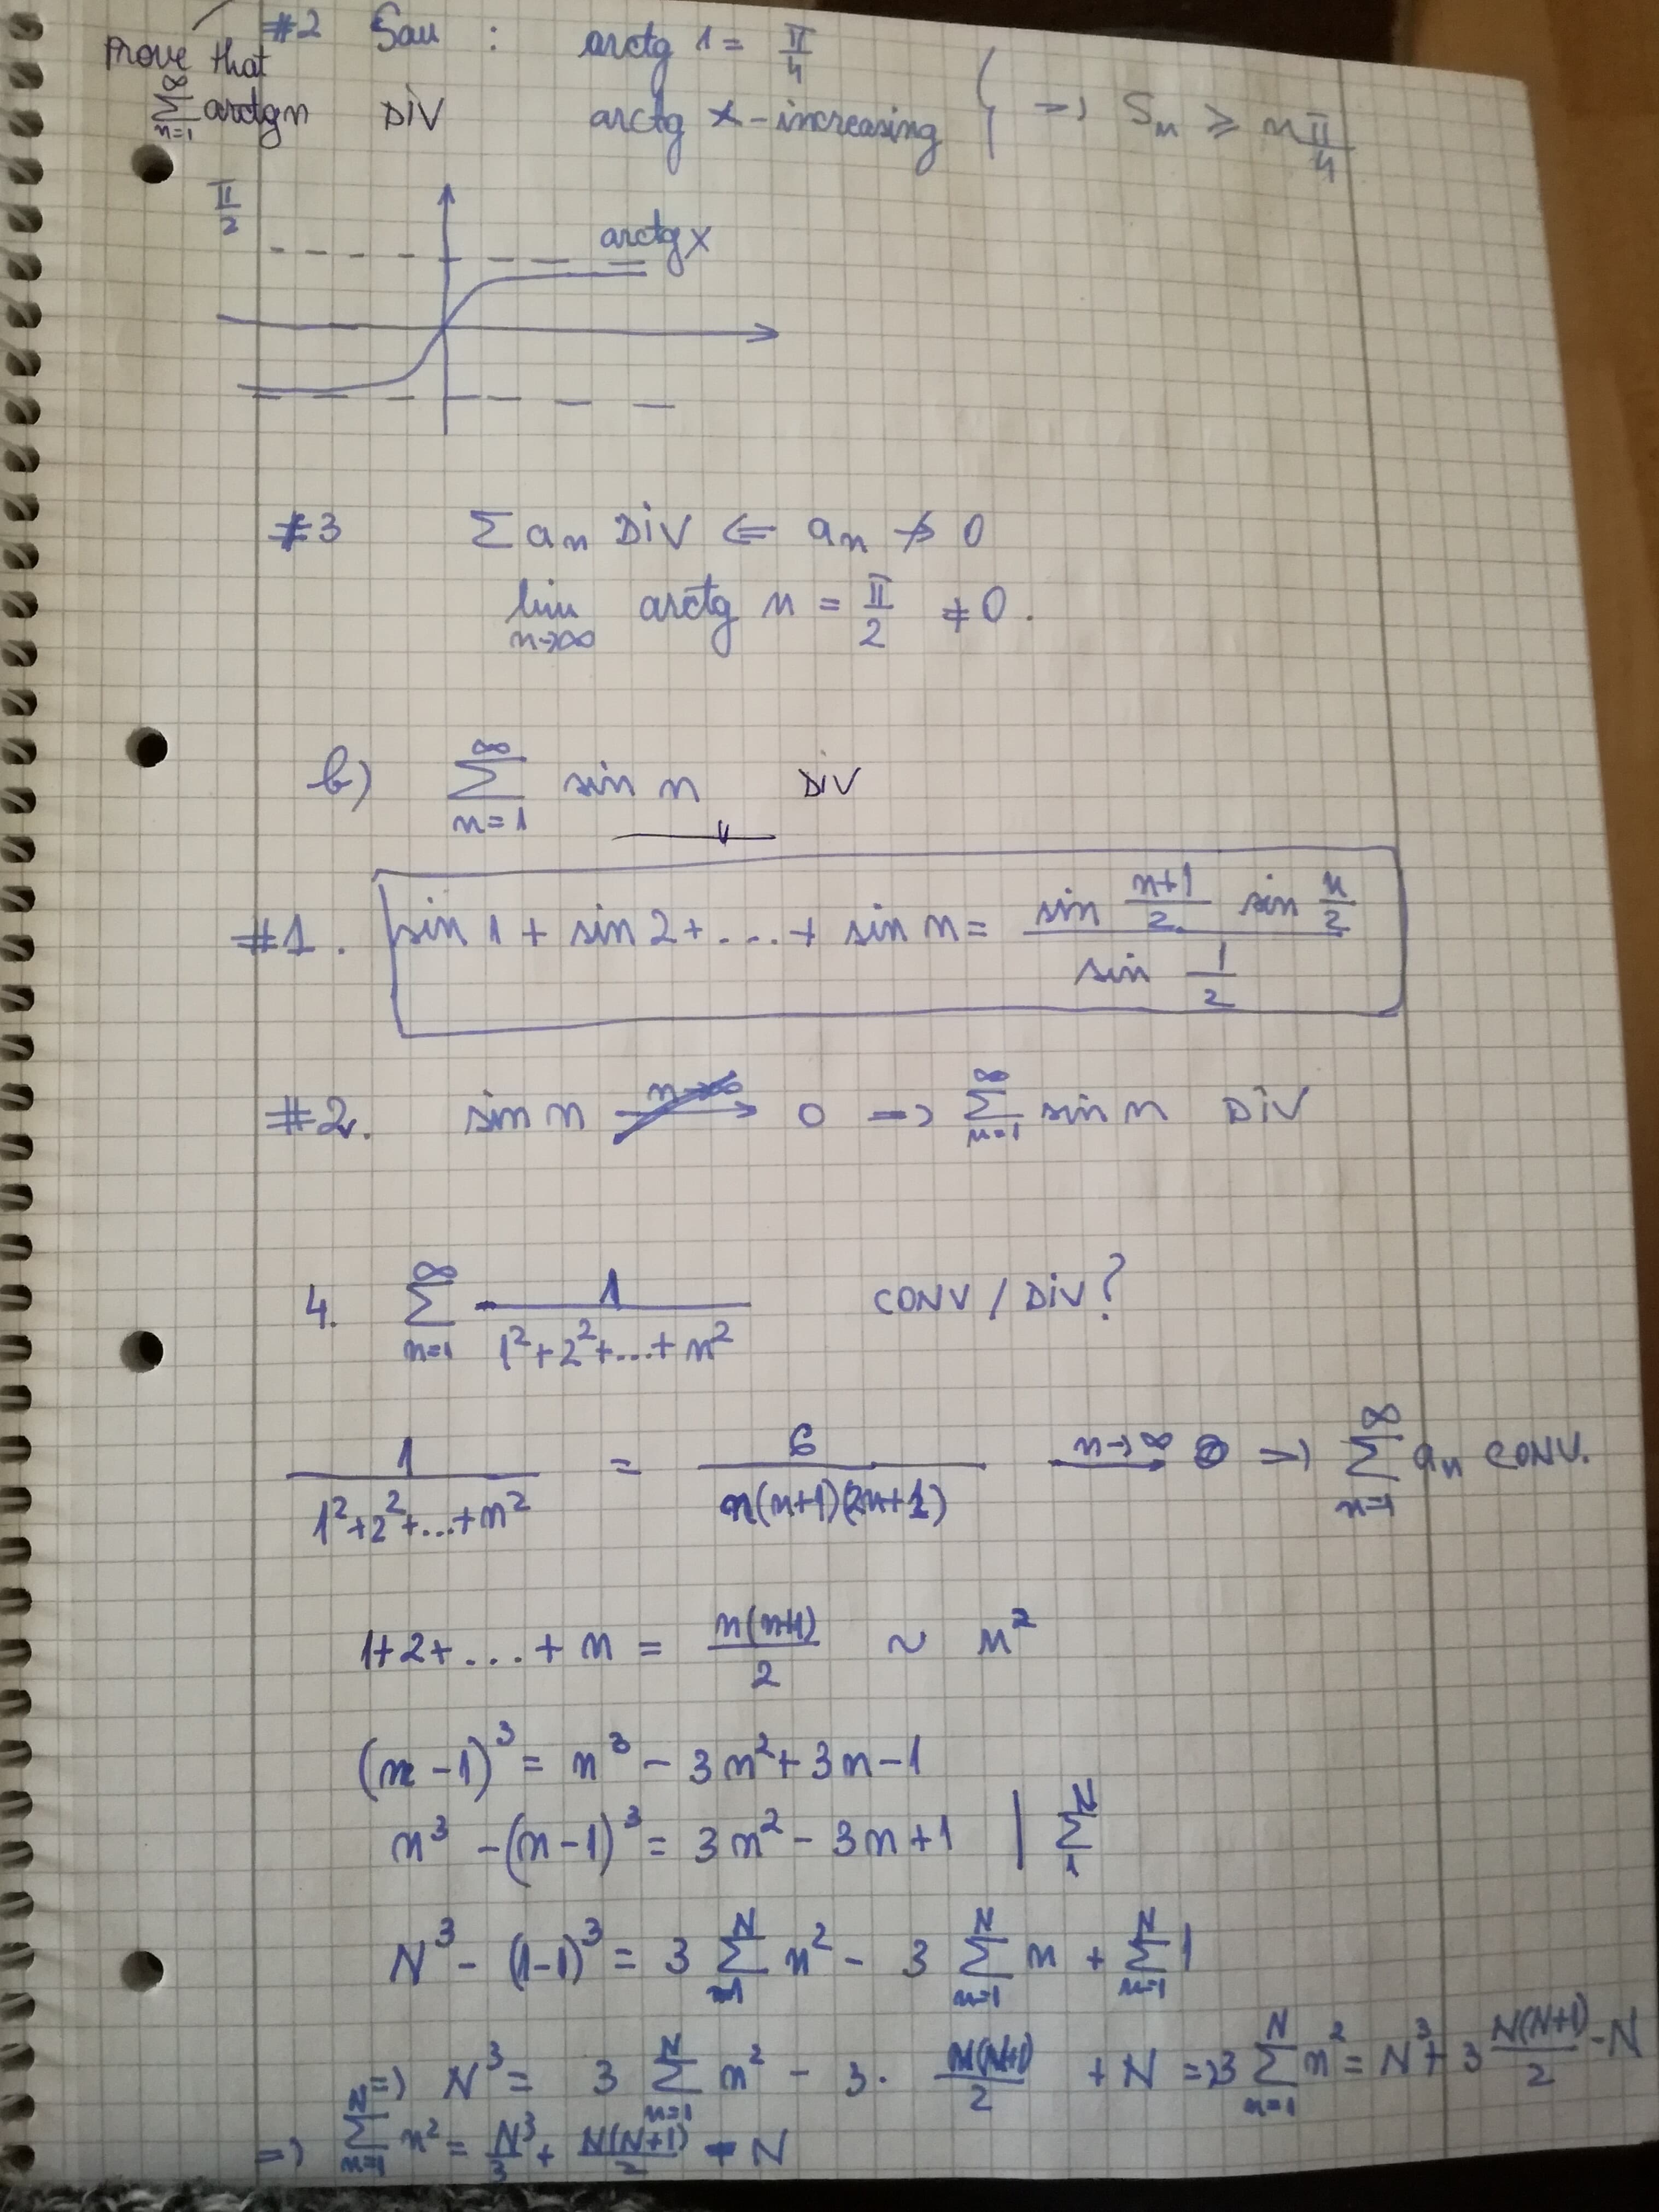 #2 Sau : arctg 1 = π/4
Prove that
∑_{n=1}^{∞} arctg n DIV arctg x - increasing } => S_n ⩾ n π/4
π/2
arctg x
#3 ∑ a_n DIV <= a_n ↛ 0
lim_{n→∞} arctg n = π/2 ≠ 0.
b) ∑_{n=1}^{∞} sin n DIV
#1. sin 1 + sin 2 + ... + sin n = (sin (n+1)/2 sin n/2) / (sin 1/2)
#2. sin n ↛ (n→∞) 0 => ∑_{n=1}^{∞} sin n DIV
4. ∑_{n=1}^{∞} 1/(1²+2²+...+n²) CONV / DIV?
1/(1²+2²+...+n²) = 6/(n(n+1)(2n+1)) →(n→∞) 0 => ∑_{n=1}^{∞} a_n CONV.
1+2+...+n = n(n+1)/2 ~ n²
(n-1)³ = n³ - 3n² + 3n - 1
n³ - (n-1)³ = 3n² - 3n + 1 | ∑_{1}^{N}
N³ - (1-1)³ = 3 ∑_{n=1}^{N} n² - 3 ∑_{n=1}^{N} n + ∑_{n=1}^{N} 1
=> N³ = 3 ∑_{n=1}^{N} n² - 3 · N(N+1)/2 + N => 3 ∑_{n=1}^{N} n² = N³ + 3 N(N+1)/2 - N
=> ∑_{n=1}^{N} n² = N³/3 + N(N+1)/2 - N